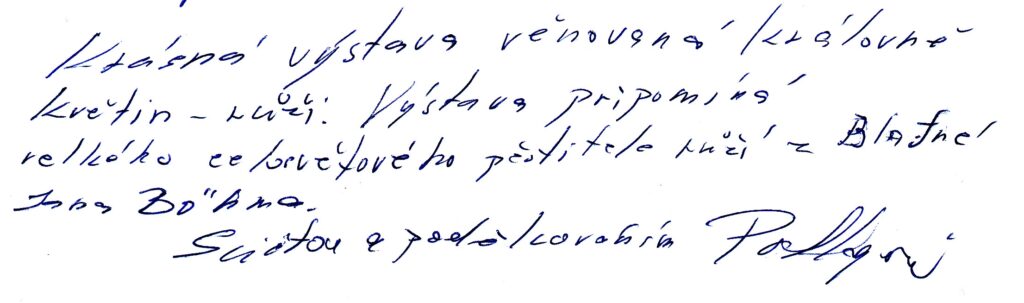 Krásná výstava věnovaná královně
květin - růži. Výstava připomíná
velkého celosvětového pěstitele růží z Blatné
Jana Böhma.
S úctou a poděkováním